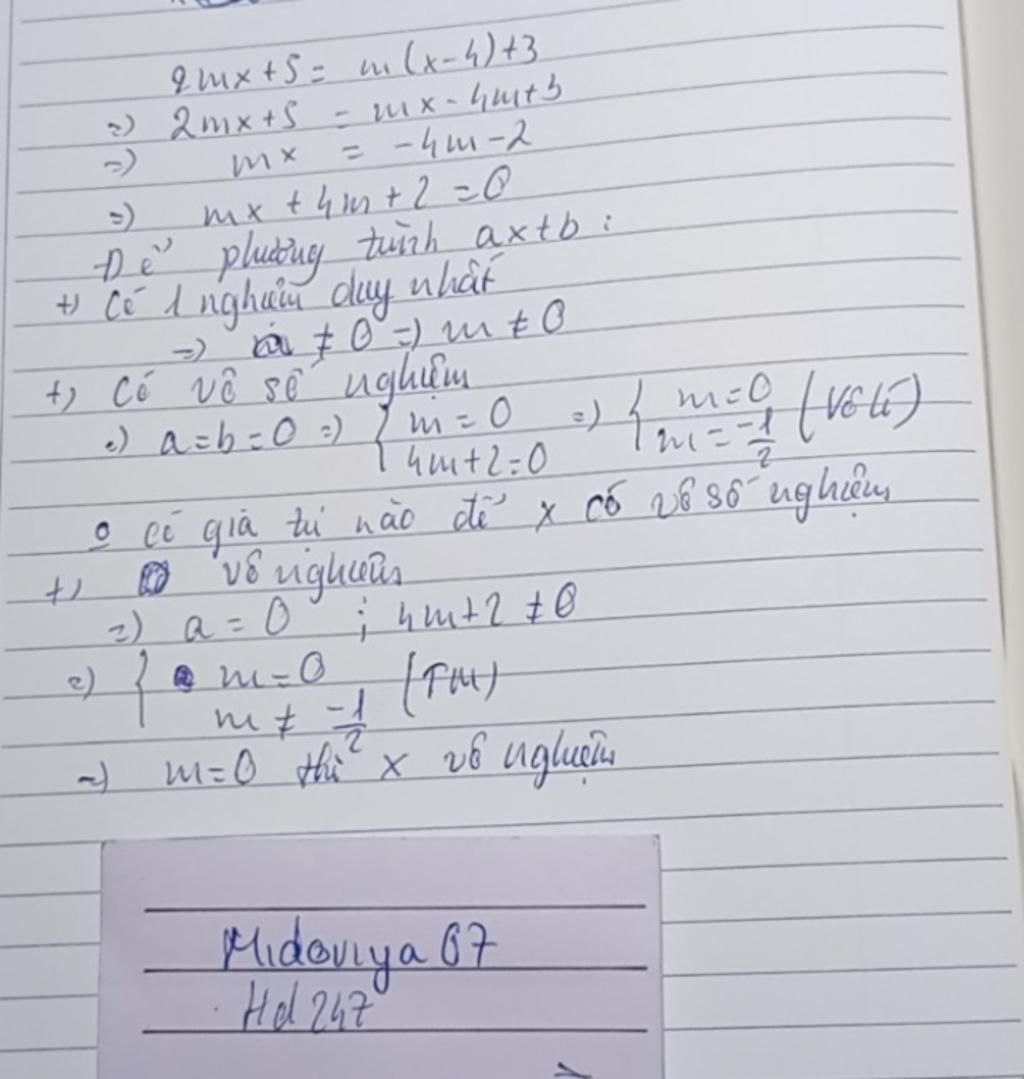 2mx+5 = m(x-4)+3
=) 2mx+5 = mx-4m+3
=) mx = -4m-2
=) mx+4m+2=0
Để phương trình ax+b :
+) Có 1 nghiệm duy nhất
=) a ≠ 0 =) m ≠ 0
+) Có vô số nghiệm
=) a=b=0 =) { m=0 4m+2=0 =) { m=0 m=-1/2 (Vô lí)
có giá trị nào để x có vô số nghiệm
+) vô nghiệm
=) a=0 ; 4m+2 ≠ 0
=) { m=0 m ≠ -1/2 (TM)
=) m=0 thì x vô nghiệm
Midoriya 07
Hd 247